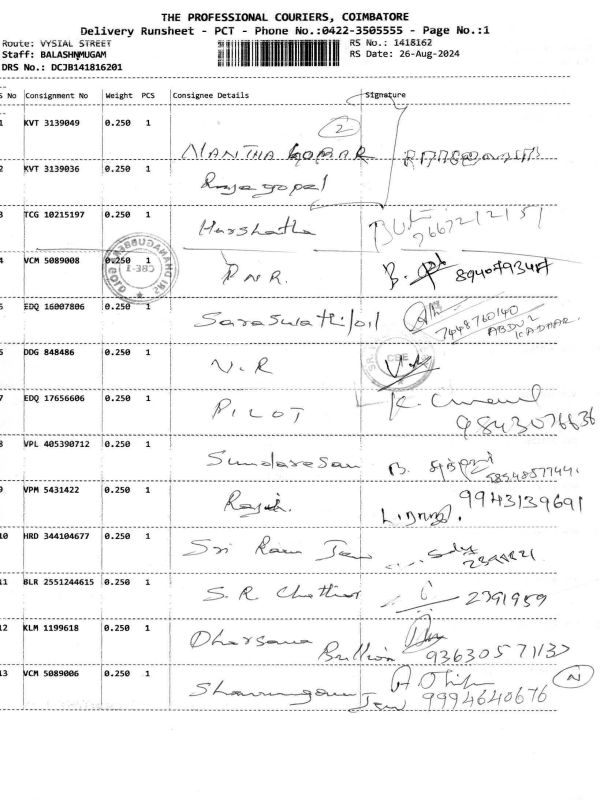 THE PROFESSIONAL COURIERS, COIMBATORE
Delivery Runsheet - PCT - Phone No.:0422-3505555 - Page No.:1
Route: VYSIAL STREET RS No.: 1418162
Staff: BALASHNMUGAM RS Date: 26-Aug-2024
DRS No.: DCJB141816201
S No Consignment No Weight PCS Consignee Details Signature
1 KVT 3139049 0.250 1
2
NANTHA GOPAR
2 KVT 3139036 0.250 1 Rajagopal
3 TCG 10215197 0.250 1 Harshatha
4 VCM 5089008 0.250 1 P N R. B.
5 EDQ 16007806 0.250 1 Saraswathi
7448760140
ABDUL
KADHAR.
6 DDG 848486 0.250 1 V.R
CBE
7 EDQ 17656606 0.250 1 PILOT K.
9843076636
8 VPL 405390712 0.250 1 Sundaresan B.
9 VPM 5431422 0.250 1 Rajesh. 9943139691
10 HRD 344104677 0.250 1 Sri Ram Jew
11 BLR 2551244615 0.250 1 S.R Chettiar 2391959
12 KLM 1199618 0.250 1 Dharsana
Bullion
13 VCM 5089006 0.250 1 Shanmugam
Jew 9994640676
N